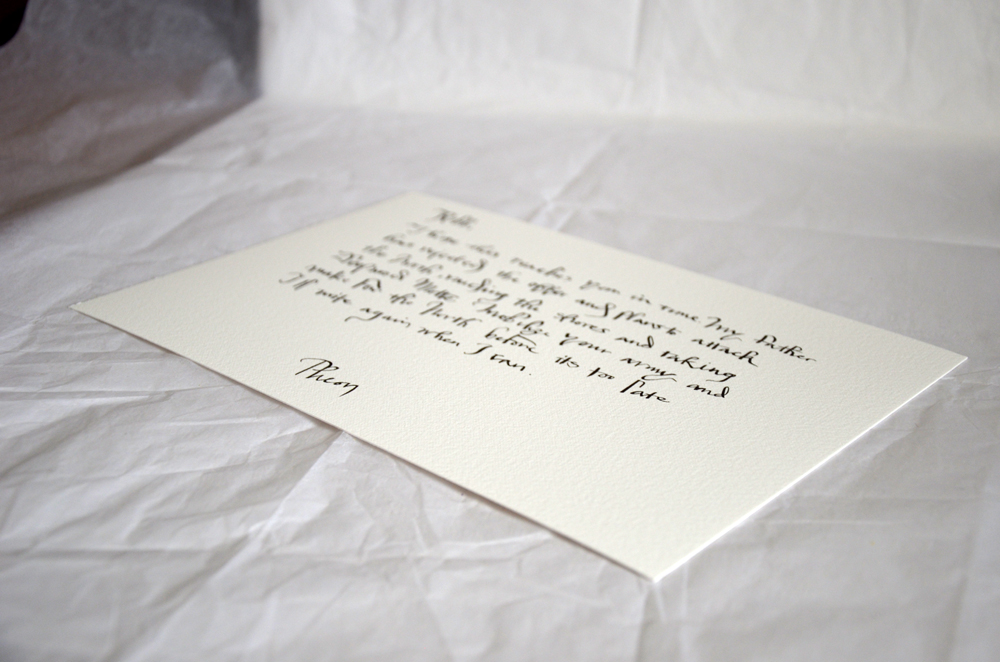 Robb,
I hope this reaches you in time My Father
has rejected the offer and plans to attack
the North, reaching the shores and taking
Deepwood Motte. Mobilize your army and
make for the North before its too late
I'll write again when I can.
Theon